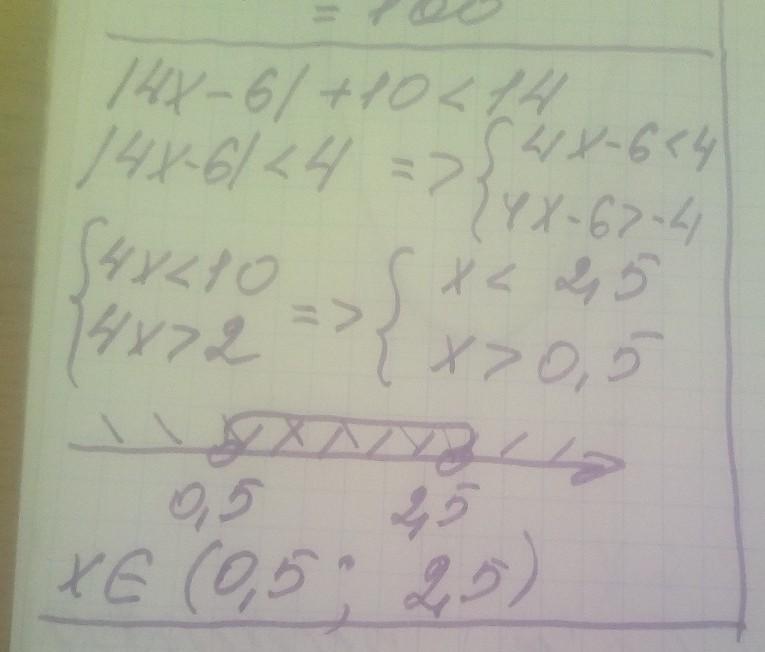 = 100
|4x-6|+10<14
|4x-6|<4 => { 4x-6<4
4x-6>-4
{ 4x<10
4x>2 => { x< 2,5
x>0,5
0,5 2,5
x∈(0,5; 2,5)